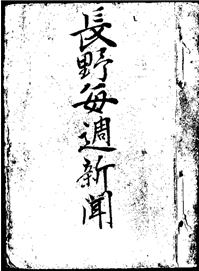 長野每週新聞